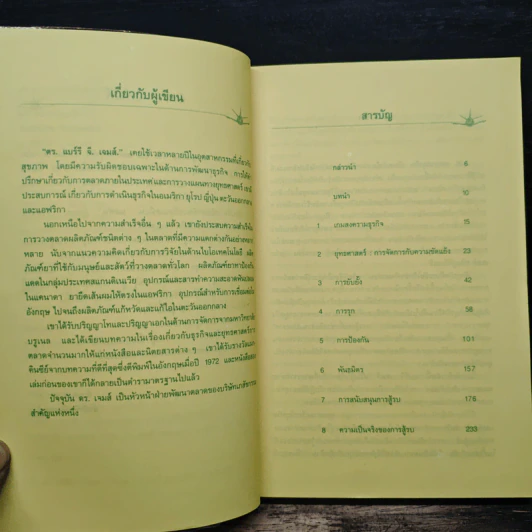 เกี่ยวกับผู้เขียน
"ดร. แบร์รี จี. เจมส์." เคยใช้เวลาหลายปีในอุตสาหกรรมที่เกี่ยวกับ
สุขภาพ โดยมีความรับผิดชอบเฉพาะในด้านการพัฒนาธุรกิจ การให้คำ
ปรึกษาเกี่ยวกับการตลาดภายในประเทศและการวางแผนทางยุทธศาสตร์ เขามี
ประสบการณ์ เกี่ยวกับการดำเนินธุรกิจในอเมริกา ยุโรป ญี่ปุ่น ตะวันออกกลาง
และแอฟริกา
นอกเหนือไปจากความสำเร็จอื่น ๆ แล้ว เขายังประสบความสำเร็จใน
การวางตลาดผลิตภัณฑ์ชนิดต่าง ๆ ในตลาดที่มีความแตกต่างกันอย่างหลาก
หลาย นับจากแนวความคิดเกี่ยวกับการวิจัยในด้านไบโอเทคโนโลยี ผลิต
ภัณฑ์ยาที่ใช้กับมนุษย์และสัตว์ที่วางตลาดทั่วโลก ผลิตภัณฑ์ยาทาป้องกัน
แดดในกลุ่มประเทศสแกนดิเนเวีย อุปกรณ์และสารทำความสะอาด
ในแคนาดา ยายืดเส้นผมให้ตรงในแอฟริกา อุปกรณ์สำหรับการเชื่อม
อังกฤษ ไปจนถึงผลิตภัณฑ์แก้หวัดและแก้ไอในตะวันออกกลาง
เขาได้รับปริญญาโทและปริญญาเอกในด้านการจัดการจากมหาวิทยาลัย
บรูเนล และได้เขียนบทความในเรื่องเกี่ยวกับธุรกิจและยุทธศาสตร์การ
ตลาดจำนวนมากให้แก่หนังสือและนิตยสารต่าง ๆ เขาได้รับรางวัล
จากบทความที่ดีที่สุดซึ่งตีพิมพ์ในอังกฤษเมื่อปี 1972 และหนังสือ
เล่มก่อนของเขาก็ได้กลายเป็นตำรามาตรฐานไปแล้ว
ปัจจุบัน ดร. เจมส์ เป็นหัวหน้าฝ่ายพัฒนาตลาดของบริษัทเภสัชกรรม
สำคัญแห่งหนึ่ง
สารบัญ
กล่าวนำ 8
บทนำ 10
1 เกมสงครามธุรกิจ 15
2 ยุทธศาสตร์ : การจัดการกับความขัดแย้ง 23
3 การยับยั้ง 42
4 การรุก 58
5 การป้องกัน 101
6 พันธมิตร 157
7 การสนับสนุนการสู้รบ 178
8 ความเป็นจริงของการสู้รบ 233